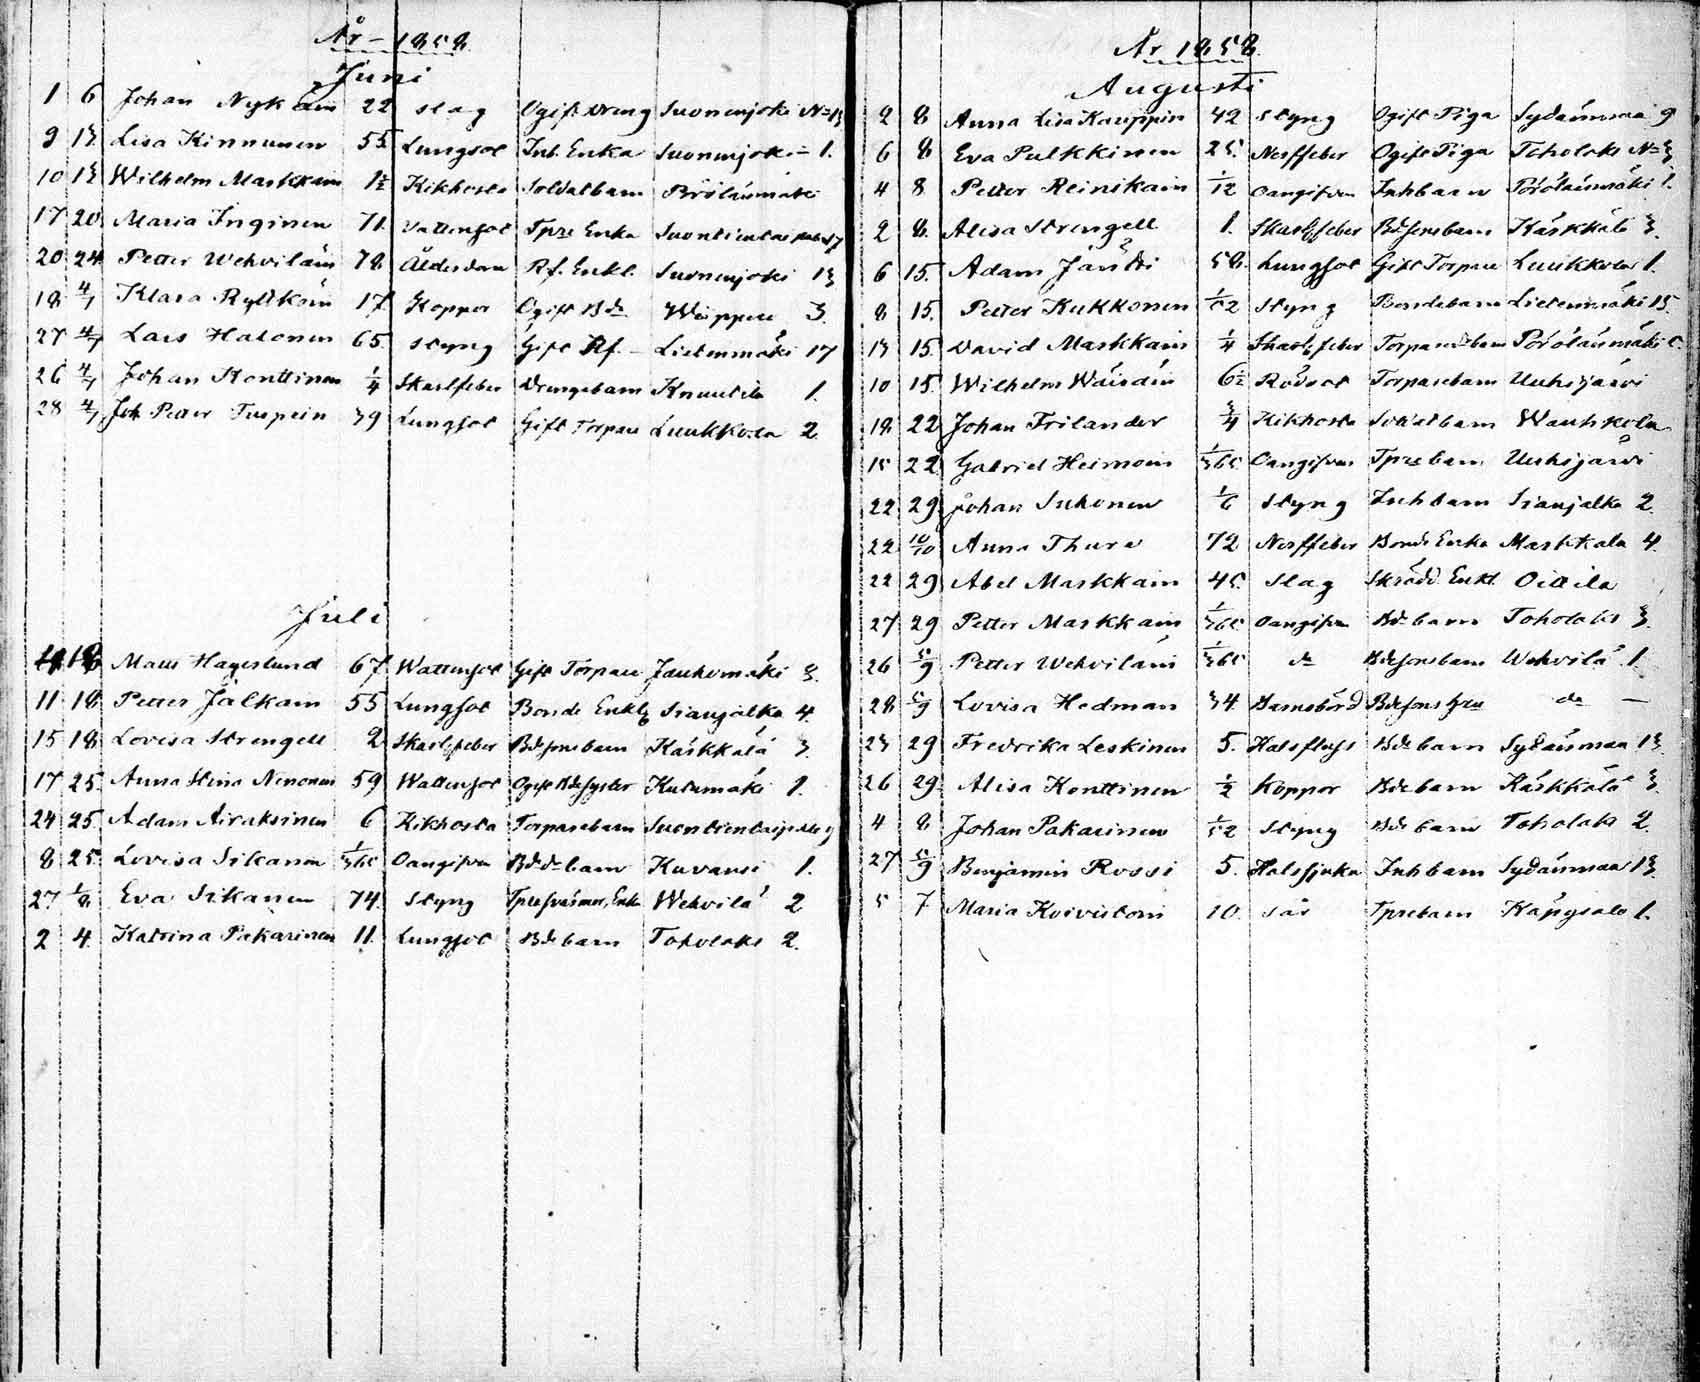 År 1858
Juni
1 6 Johan Nykäin 22 slag Ogift Dreng Suonenjoki N=13
9 13 Lisa Kinnunen 55 Lungsot Inh. Enka Suonenjoki 1.
10 13 Wilhelm Markkain 1½ Kikhosta Soldatbarn Pörölänmäki
17 20 Maria Inginen 71. Vattensot Tpre Enka
20 24 Petter Wehviläin 78 Ålderdom Rf. Enkl. Suonenjoki 13
18 4/7 Klara Rytköin 17. Koppor Ogift Bde 3.
27 4/7 Lars Halonen 65. styng Gift Rf. Lietenmäki 17
26 4/7 Johan Konttinen ¼ Skarlfeber Drengebarn Knuutila 1.
28 4/7 Joh Petter Turpein 39 Lungsot Gift Torpare Luukkola 2.
Juli
18 Mats Hagerlund 67 Wattensot Gift Torpare Jauhomäki 3.
11 18 Petter Jalkain 55 Lungsot Bonde Enkl Sianjalka 4.
15 18 Lovisa Strengell 2 Skarlfeber Bdesonsbarn Kärkkälä 3.
17 25. Anna Stina Ninonen 59 Wattensot Ogift Bdesyster Kutumäki 1.
24 25. Adam Airaksinen 6 Kikhosta Torparebarn
8 25. Lovisa Sikanen 1/365 Oangifven Bde barn Kuvansi 1.
27 1/8 Eva Sikanen 74. Styng Wehvilä 2
2 4. Katrina Pakarinen 11. Lungsot Bdebarn Toholaks 2.
År 1858.
Augusti
2 8 Anna Lisa Kauppin 42 styng Ogift Piga Sydänmaa 9
6 8 Eva Pulkkinen 25. Nerffeber Ogift Piga Toholaks N=3
4 8 Petter Reinikain 1/12 Oangifven Inhbarn Pörölänmäki 1.
2 8. Alexa Strengell 1. Skarlfeber Bdesonsbarn Kärkkälä 3.
6 15. Adam Jäntti 58. Lungsot Gift Torpare Luukkola 1.
8 15. Petter Kukkonen 1/52 styng Bondebarn Lietenmäki 15.
13 15. David Markkain ¼ Skarlfeber Torparebarn Pörölänmäki
10 15. Wilhelm Wäisäin 6½ Rödsot Torparebarn Uuhijärvi
18 22 Johan Frilander ¾ Kikhosta Soldatbarn Wauhkola
15 22 Gabriel Heimoin 1/365 Oangifven Tprebarn Uuhijärvi
22 29 Johan Suhonen 1/6 Styng Inhbarn Sianjalka 2.
22 10/10 Anna Thure 72 Nerffeber Bonde Enka Markkala 4.
22 29 Abel Markkain 45. slag Skrädd. Enkl. Oittila
27 29 Petter Markkain 1/365 Oangifven Bde barn Toholaks 3.
26 5/9 Petter Wehviläin 1/365 do Bdesonsbarn Wehvilä 1.
28 5/9 Lovisa Hedman 34. Barnsbörd Bdesons hru do —
23 29 Fredrika Leskinen 5. Halsfluss Bdebarn Sydänmaa 13
26 29. Alisa Konttinen ½ Koppor Bdebarn Kärkkälä 3
4 8 Johan Pakarinen 1/52 styng Bde barn Toholaks 2.
27 5/9 Benjamin Rossi 5. Halssjuka Inhbarn Sydänmaa 13.
5 7 Maria Koivistoin 10. sår Tprebarn Käpysalo 1.